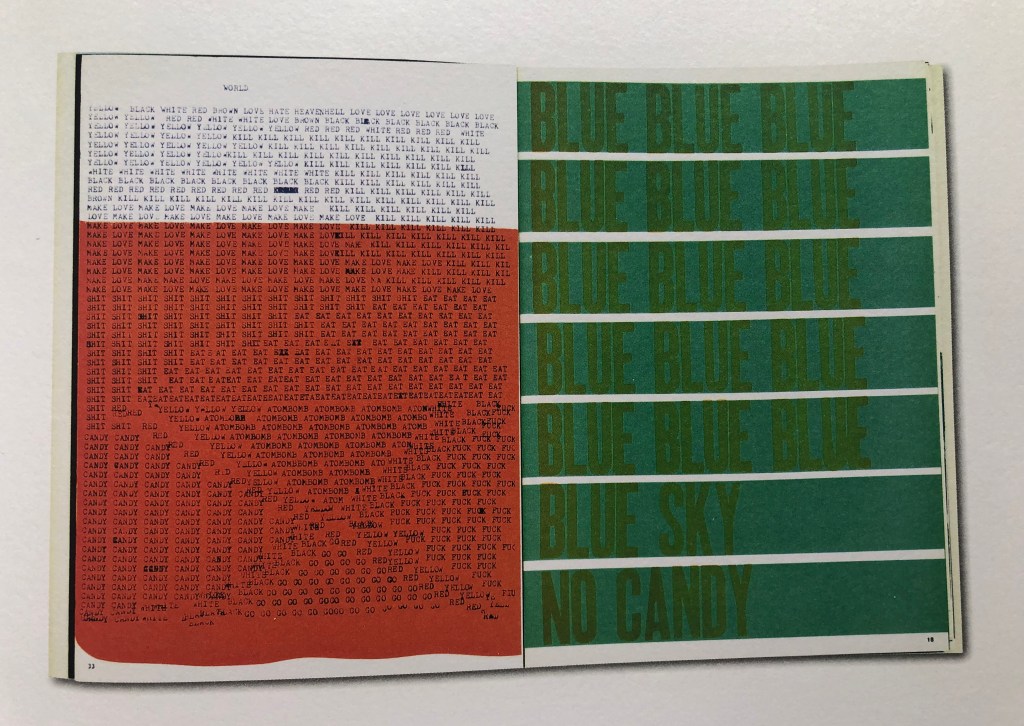 WORLD
YELLOW BLACK WHITE RED BROWN LOVE HATE HEAVENHELL LOVE LOVE LOVE LOVE LOVE LOVE
YELLOW YELLOW RED RED WHITE WHITE LOVE BROWN BLACK BLACK BLACK BLACK BLACK BLACK
YELLOW YELLOW YELLOW YELLOW YELLOW YELLOW RED RED RED WHITE RED RED RED WHITE
YELLOW YELLOW YELLOW YELLOW KILL KILL KILL KILL KILL KILL KILL KILL
YELLOW YELLOW YELLOW YELLOW YELLOW KILL KILL KILL KILL KILL KILL KILL
YELLOW YELLOW YELLOW YELLOWKILL KILL KILL KILL KILL KILL KILL KILL
YELLOW YELLOW YELLOW YELLOW YELLOW YELLOW KILL KILL KILL KILL KILL
WHITE WHITE WHITE WHITE WHITE WHITE WHITE KILL KILL KILL KILL KILL
BLACK BLACK BLACK BLACK BLACK BLACK BLACK BLACK KILL KILL KILL KILL KILL
RED RED RED RED RED RED RED RED RED RED KILL KILL KILL KILL KILL
BROWN KILL KILL KILL KILL KILL KILL KILL KILL KILL KILL KILL KILL
MAKE LOVE MAKE LOVE MAKE LOVE MAKE LOVE MAKE KILL KILL KILL KILL KILL
LOVE MAKE LOVE MAKE LOVE MAKE LOVE MAKE LOVE MAKE LOVE KILL KILL KILL KILL KILL
MAKE LOVE MAKE LOVE MAKE LOVE MAKE LOVE MAKE LOVE KILL KILL KILL KILL KILL
MAKE LOVE MAKE LOVE MAKE LOVE MAKE LOVE MAKE LOVE MAK KILL KILL KILL KILL KILL
MAKE LOVE MAKE LOVE MAKE LOVE MAKE LOVE MAKE LOVE KILL KILL KILL KILL KILL
MAKE LOVE MAKE LOVE MAKE LOVE MAKE LOVE MAKE LOVE MAKE KILL KILL KILL KILL
MAKE LOVE MAKE LOVE MAKE LOVE MAKE LOVE MAKE LOVE MAKE LOVE MAKE KILL KILL KILL
MAKE LOVE MAKE LOVE MAKE LOVE MAKE LOVE MAKE LOVE MAKE NA KILL KILL KILL KILL
MAKE LOVE MAKE LOVE MAKE LOVE MAKE LOVE MAKE LOVE MAKE LOVE MAKE LOVE MAKE LOVE
SHIT SHIT SHIT SHIT SHIT SHIT SHIT SHIT SHIT SHIT EAT EAT EAT EAT
SHIT SHIT SHIT SHIT SHIT SHIT SHIT SHIT EAT EAT EAT EAT EAT EAT
SHIT SHIT SHIT SHIT SHIT SHIT SHIT EAT EAT EAT EAT EAT EAT EAT
SHIT SHIT SHIT SHIT SHIT SHIT SHIT EAT EAT EAT EAT EAT EAT EAT
SHIT SHIT SHIT SHIT SHIT SHIT EAT EAT EAT EAT EAT EAT EAT EAT
SHIT SHIT SHIT SHIT EAT EAT EAT EAT EAT EAT EAT EAT EAT EAT
SHIT SHIT SHIT SHIT EAT EAT EAT EAT EAT EAT EAT EAT EAT EAT
SHIT SHIT SHIT EAT EATEAT EAT EATEAT EAT EAT EAT EAT EAT EAT
SHIT SHIT EAT EAT EAT EAT EAT EAT EAT EAT EAT EAT EAT EAT EAT
SHIT RED YELLOW YELLOW YELLOW ATOMBOMB ATOMBOMB ATOMBOMB WHITE BLACK
SHIT YELLOW ATOMBOMB ATOMBOMB ATOMBOMB ATOMBOMB WHITE BLACK
SHIT SHIT RED YELLOW ATOMBOMB ATOMBOMB ATOMBOMB ATOMBOMB BLACK FUCK
CANDY CANDY RED YELLOW ATOMBOMB ATOMBOMB ATOMBOMB ATOMBOMB WHITE BLACK FUCK FUCK
CANDY CANDY CANDY RED YELLOW ATOMBOMB ATOMBOMB ATOMBOMB BLACK FUCK FUCK
CANDY CANDY CANDY CANDY RED YELLOW ATOMBOMB ATOMBOMB WHITE BLACK FUCK FUCK FUCK
CANDY CANDY CANDY CANDY RED YELLOW ATOMBOMB ATOMBOMB WHITE BLACK FUCK FUCK FUCK
CANDY CANDY CANDY CANDY CANDY RED YELLOW ATOMBOMB WHITE BLACK FUCK FUCK FUCK FUCK
CANDY CANDY CANDY CANDY CANDY RED YELLOW ATOM WHITE BLACK FUCK FUCK FUCK FUCK
CANDY CANDY CANDY CANDY CANDY CANDY RED YELLOW WHITE BLACK FUCK FUCK FUCK
CANDY CANDY CANDY CANDY CANDY CANDY RED YELLOW BLACK FUCK FUCK FUCK FUCK
CANDY CANDY CANDY CANDY CANDY CANDY RED YELLOW FUCK FUCK FUCK FUCK
CANDY CANDY CANDY CANDY CANDY WHITE RED YELLOW YELLOW FUCK FUCK FUCK
CANDY CANDY CANDY CANDY CANDY WHITE BLACK RED YELLOW FUCK FUCK FUCK
CANDY CANDY CANDY CANDY CANDY BLACK GO GO RED YELLOW FUCK FUCK FUCK
CANDY CANDY CANDY CANDY BLACK GO GO GO GO RED YELLOW FUCK FUCK
CANDY CANDY CANDY CANDY CANDY BLACK GO GO GO GO GO GO RED YELLOW FUCK
CANDY CANDY CANDY CANDY BLACK GO GO GO GO GO GO RED YELLOW
CANDY CANDY WHITE WHITE BLACK GO GO GO GO GO GO RED
CANDY CANDY WHITE BLACK GO GO GO GO GO GO RED
BLACK
33
BLUE BLUE BLUE
BLUE BLUE BLUE
BLUE BLUE BLUE
BLUE BLUE BLUE
BLUE BLUE BLUE
BLUE SKY
NO CANDY